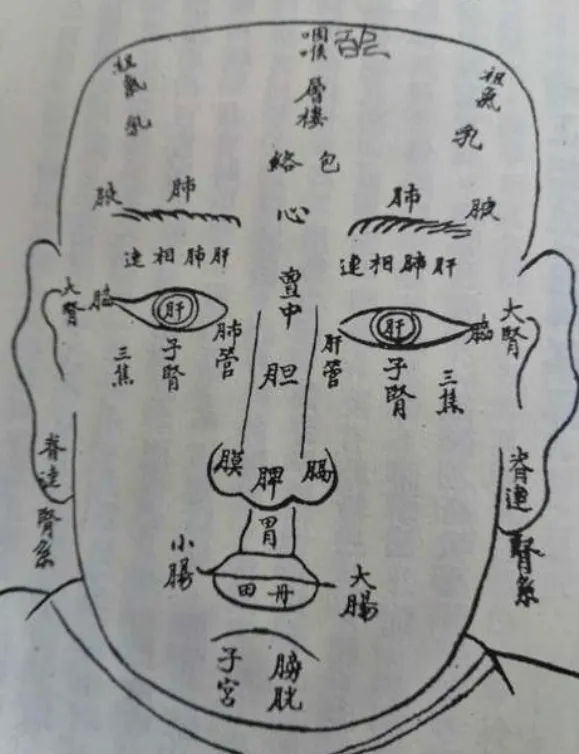 咽喉
祖氣
層樓
祖氣
乳
乳
包絡
腋
肺
心
肺
腋
肝肺相連
肝肺相連
亶中
大腎
腦
肝
肝
腦
大腎
三焦
子腎
肺管
胆
肝管
子腎
三焦
膜
脾
腸
胃
脊連腎系
脊連腎系
小腸
丹田
大腸
子宮
膀胱